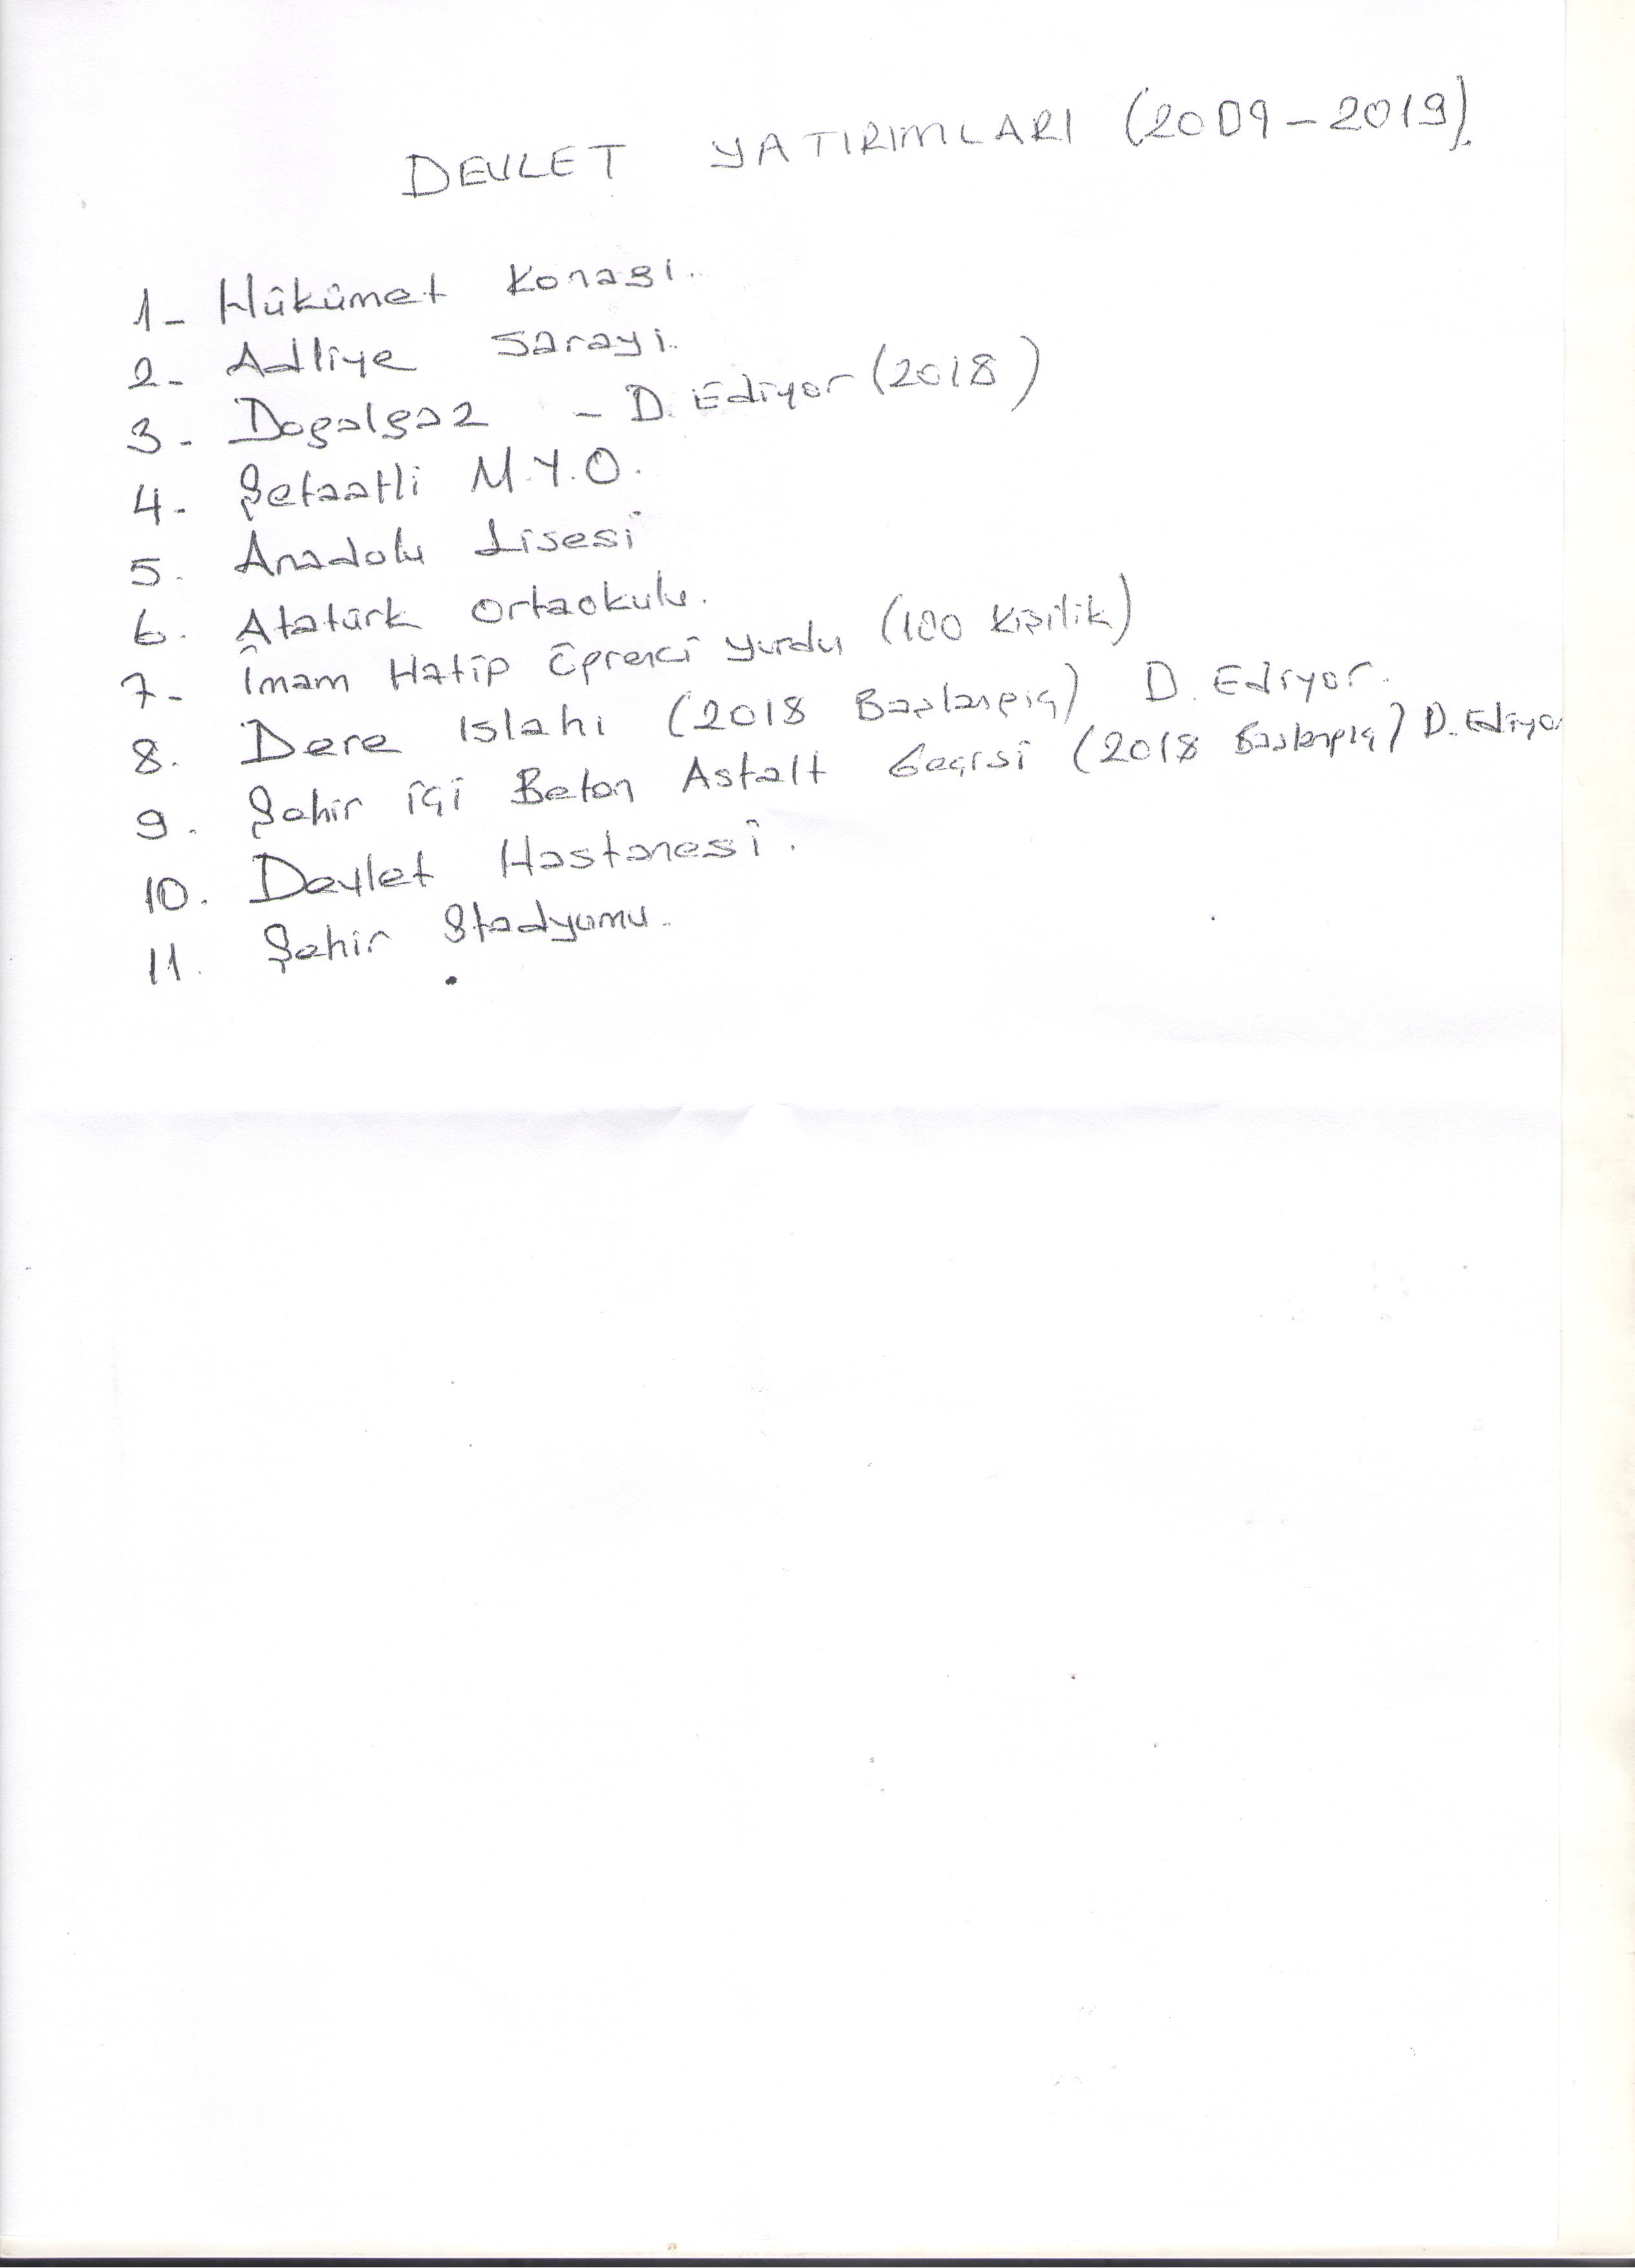 DEVLET YATIRIMLARI (2009-2019).
1- Hükümet Konağı.
2- Adliye Sarayı.
3- Doğalgaz - D. Ediyor (2018)
4- Şefaatli M.Y.O.
5. Anadolu Lisesi
6. Atatürk Ortaokulu.
7- İmam Hatip Öğrenci yurdu (100 kişilik)
8. Dere Islahı (2018 Başlangıç) D. Ediyor.
9. Şehir içi Beton Asfalt Geçişi (2018 Başlangıç) D. Ediyor
10. Devlet Hastanesi.
11. Şehir Stadyumu.